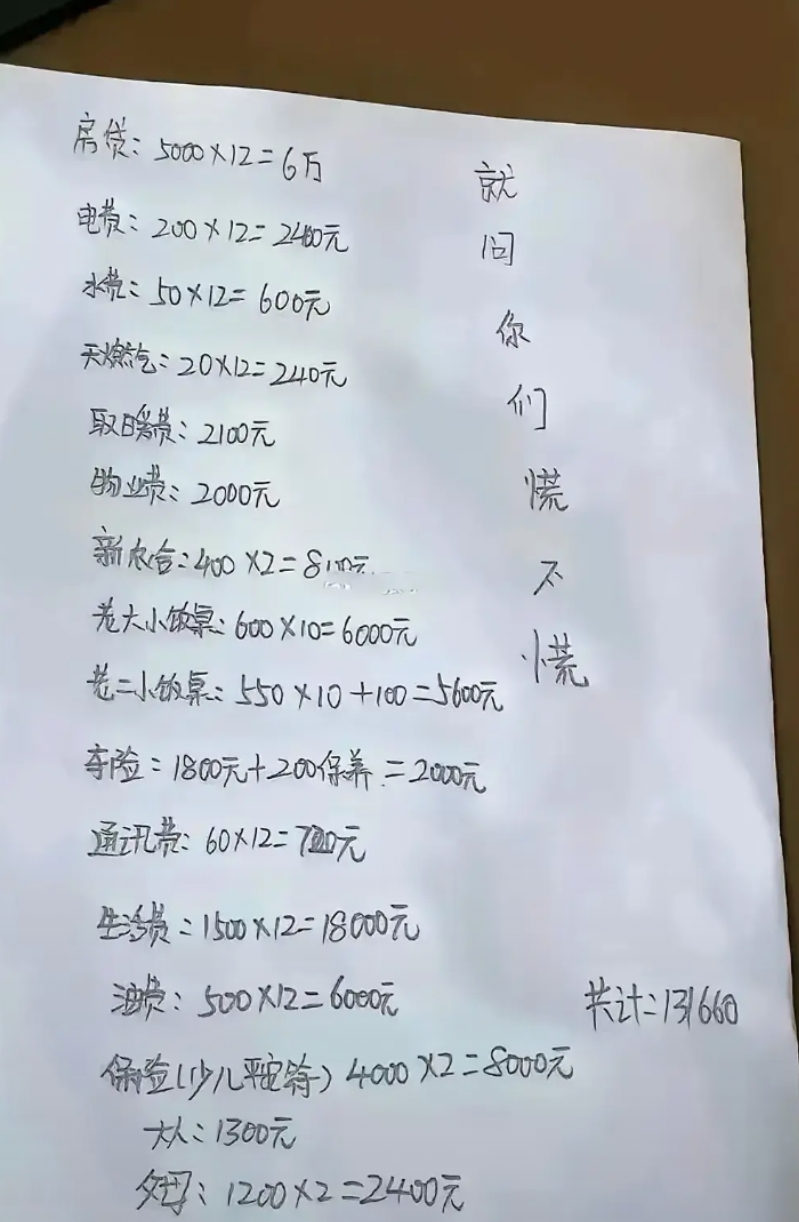 房贷：5000×12=6万
电费：200×12=2400元
水费：50×12=600元
天燃气：20×12=240元
取暖费：2100元
物业费：2000元
新农合：400×2=800元
老大小饭桌：600×10=6000元
老二小饭桌：550×10+100=5600元
车险：1800元+200保养=2000元
通讯费：60×12=720元
生活费：1500×12=18000元
油费：500×12=6000元
保险(少儿平安符) 4000×2=8000元
大人：1300元
父母：1200×2=2400元
就
问
你
们
慌
不
慌
共计：131660